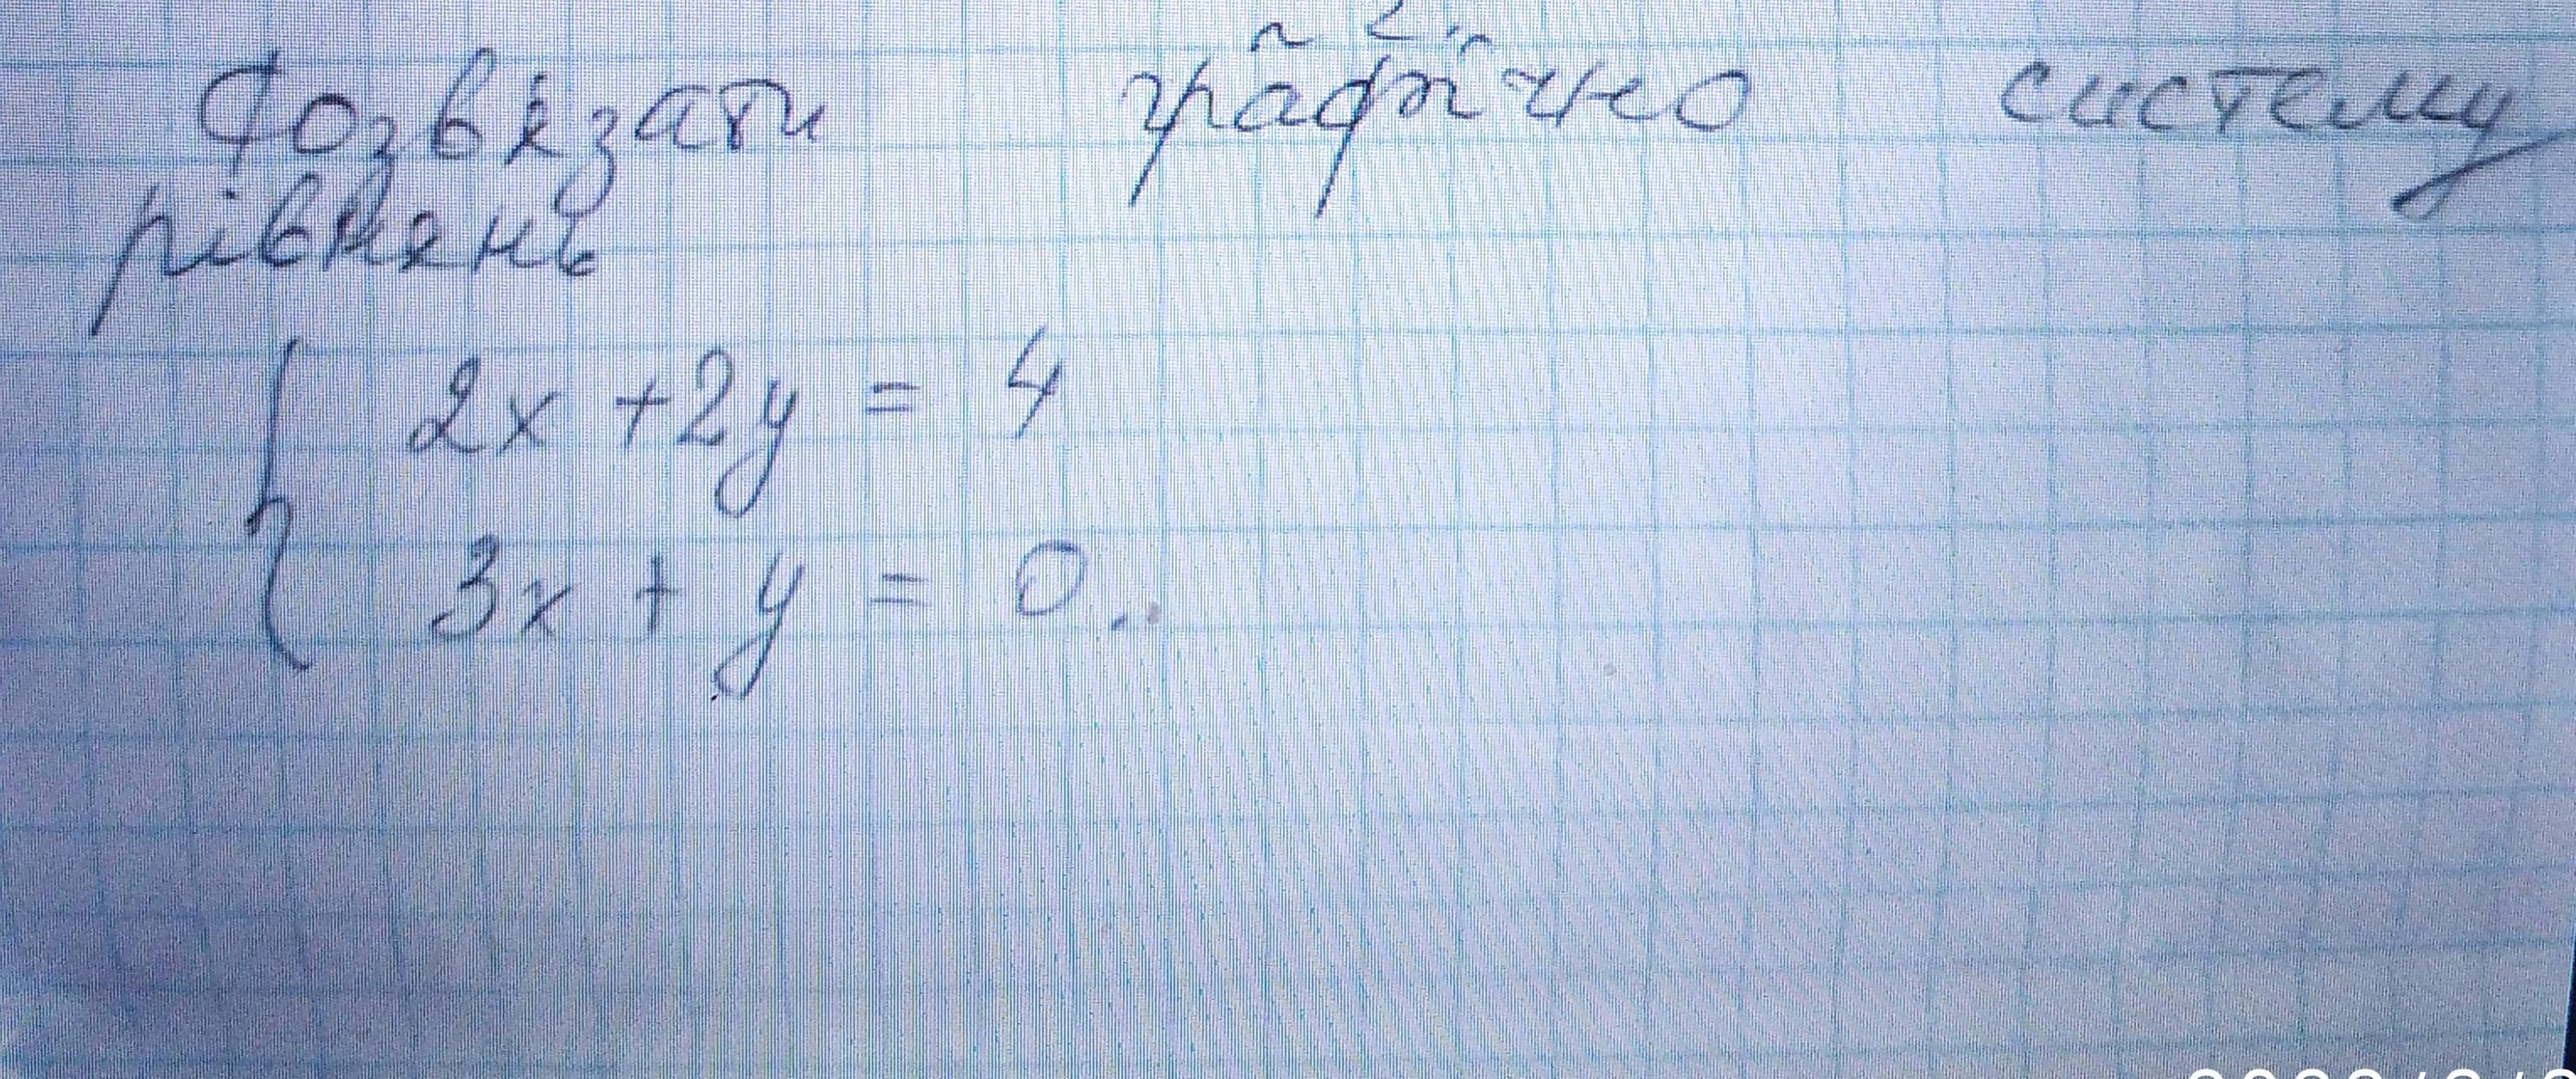 Розвязати графічно систему
рівнянь
2x + 2y = 4
3x + y = 0.